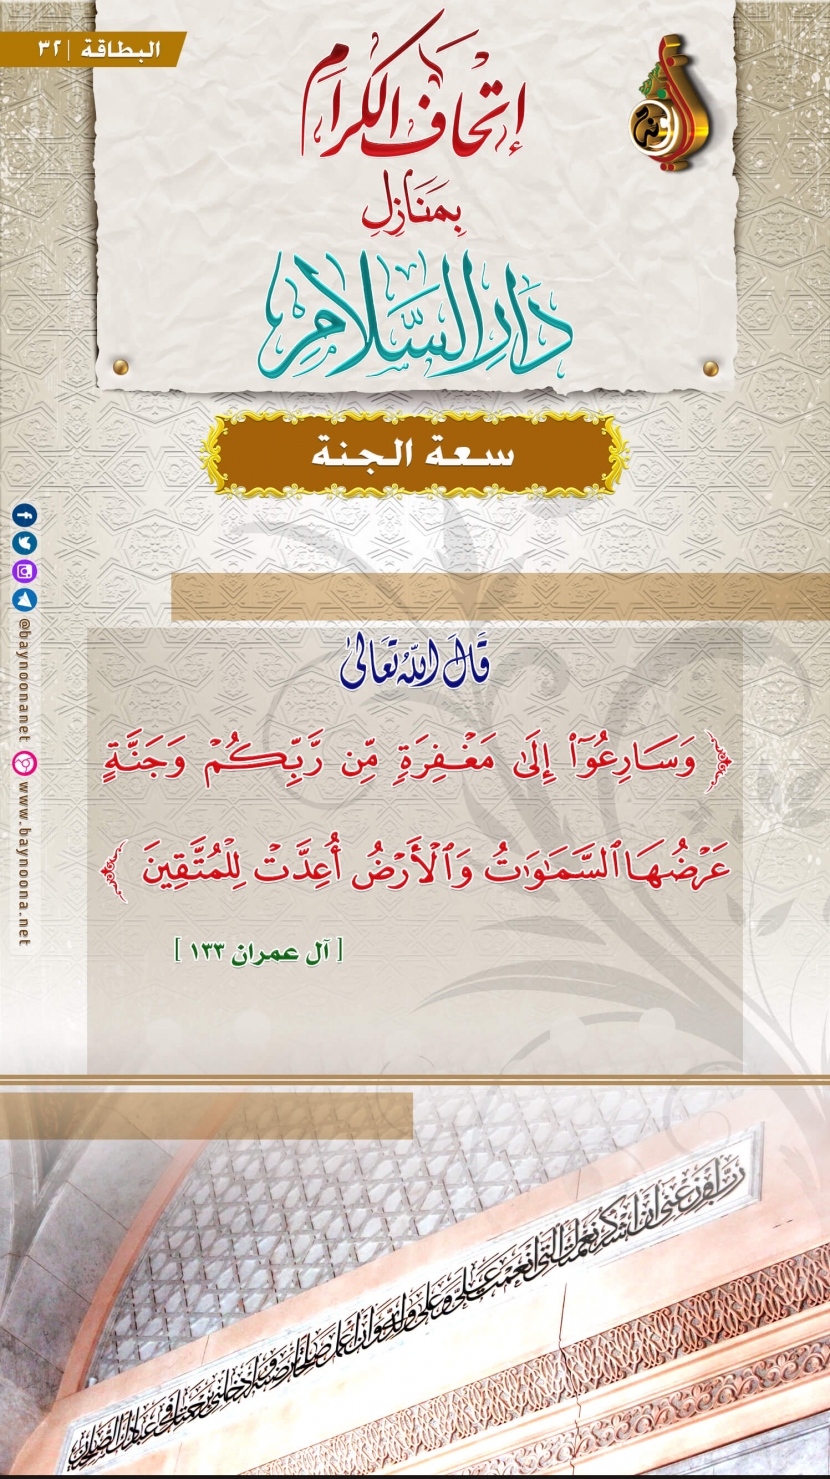 البطاقة | ٣٢
إتحاف الكرام
بمنازل
دار السلام
سعة الجنة
قال الله تعالى
﴿ وَسَارِعُوٓا۟ إِلَىٰ مَغْفِرَةٍ مِّن رَّبِّكُمْ وَجَنَّةٍ
عَرْضُهَا ٱلسَّمَـٰوَٰتُ وَٱلْأَرْضُ أُعِدَّتْ لِلْمُتَّقِينَ ﴾
[ آل عمران ١٣٣ ]
@baynoonanet
www.baynoona.net
رب أوزعني أن أشكر نعمتك التي أنعمت علي وعلى والدي وأن أعمل صالحا ترضاه وأدخلني برحمتك في عبادك الصالحين